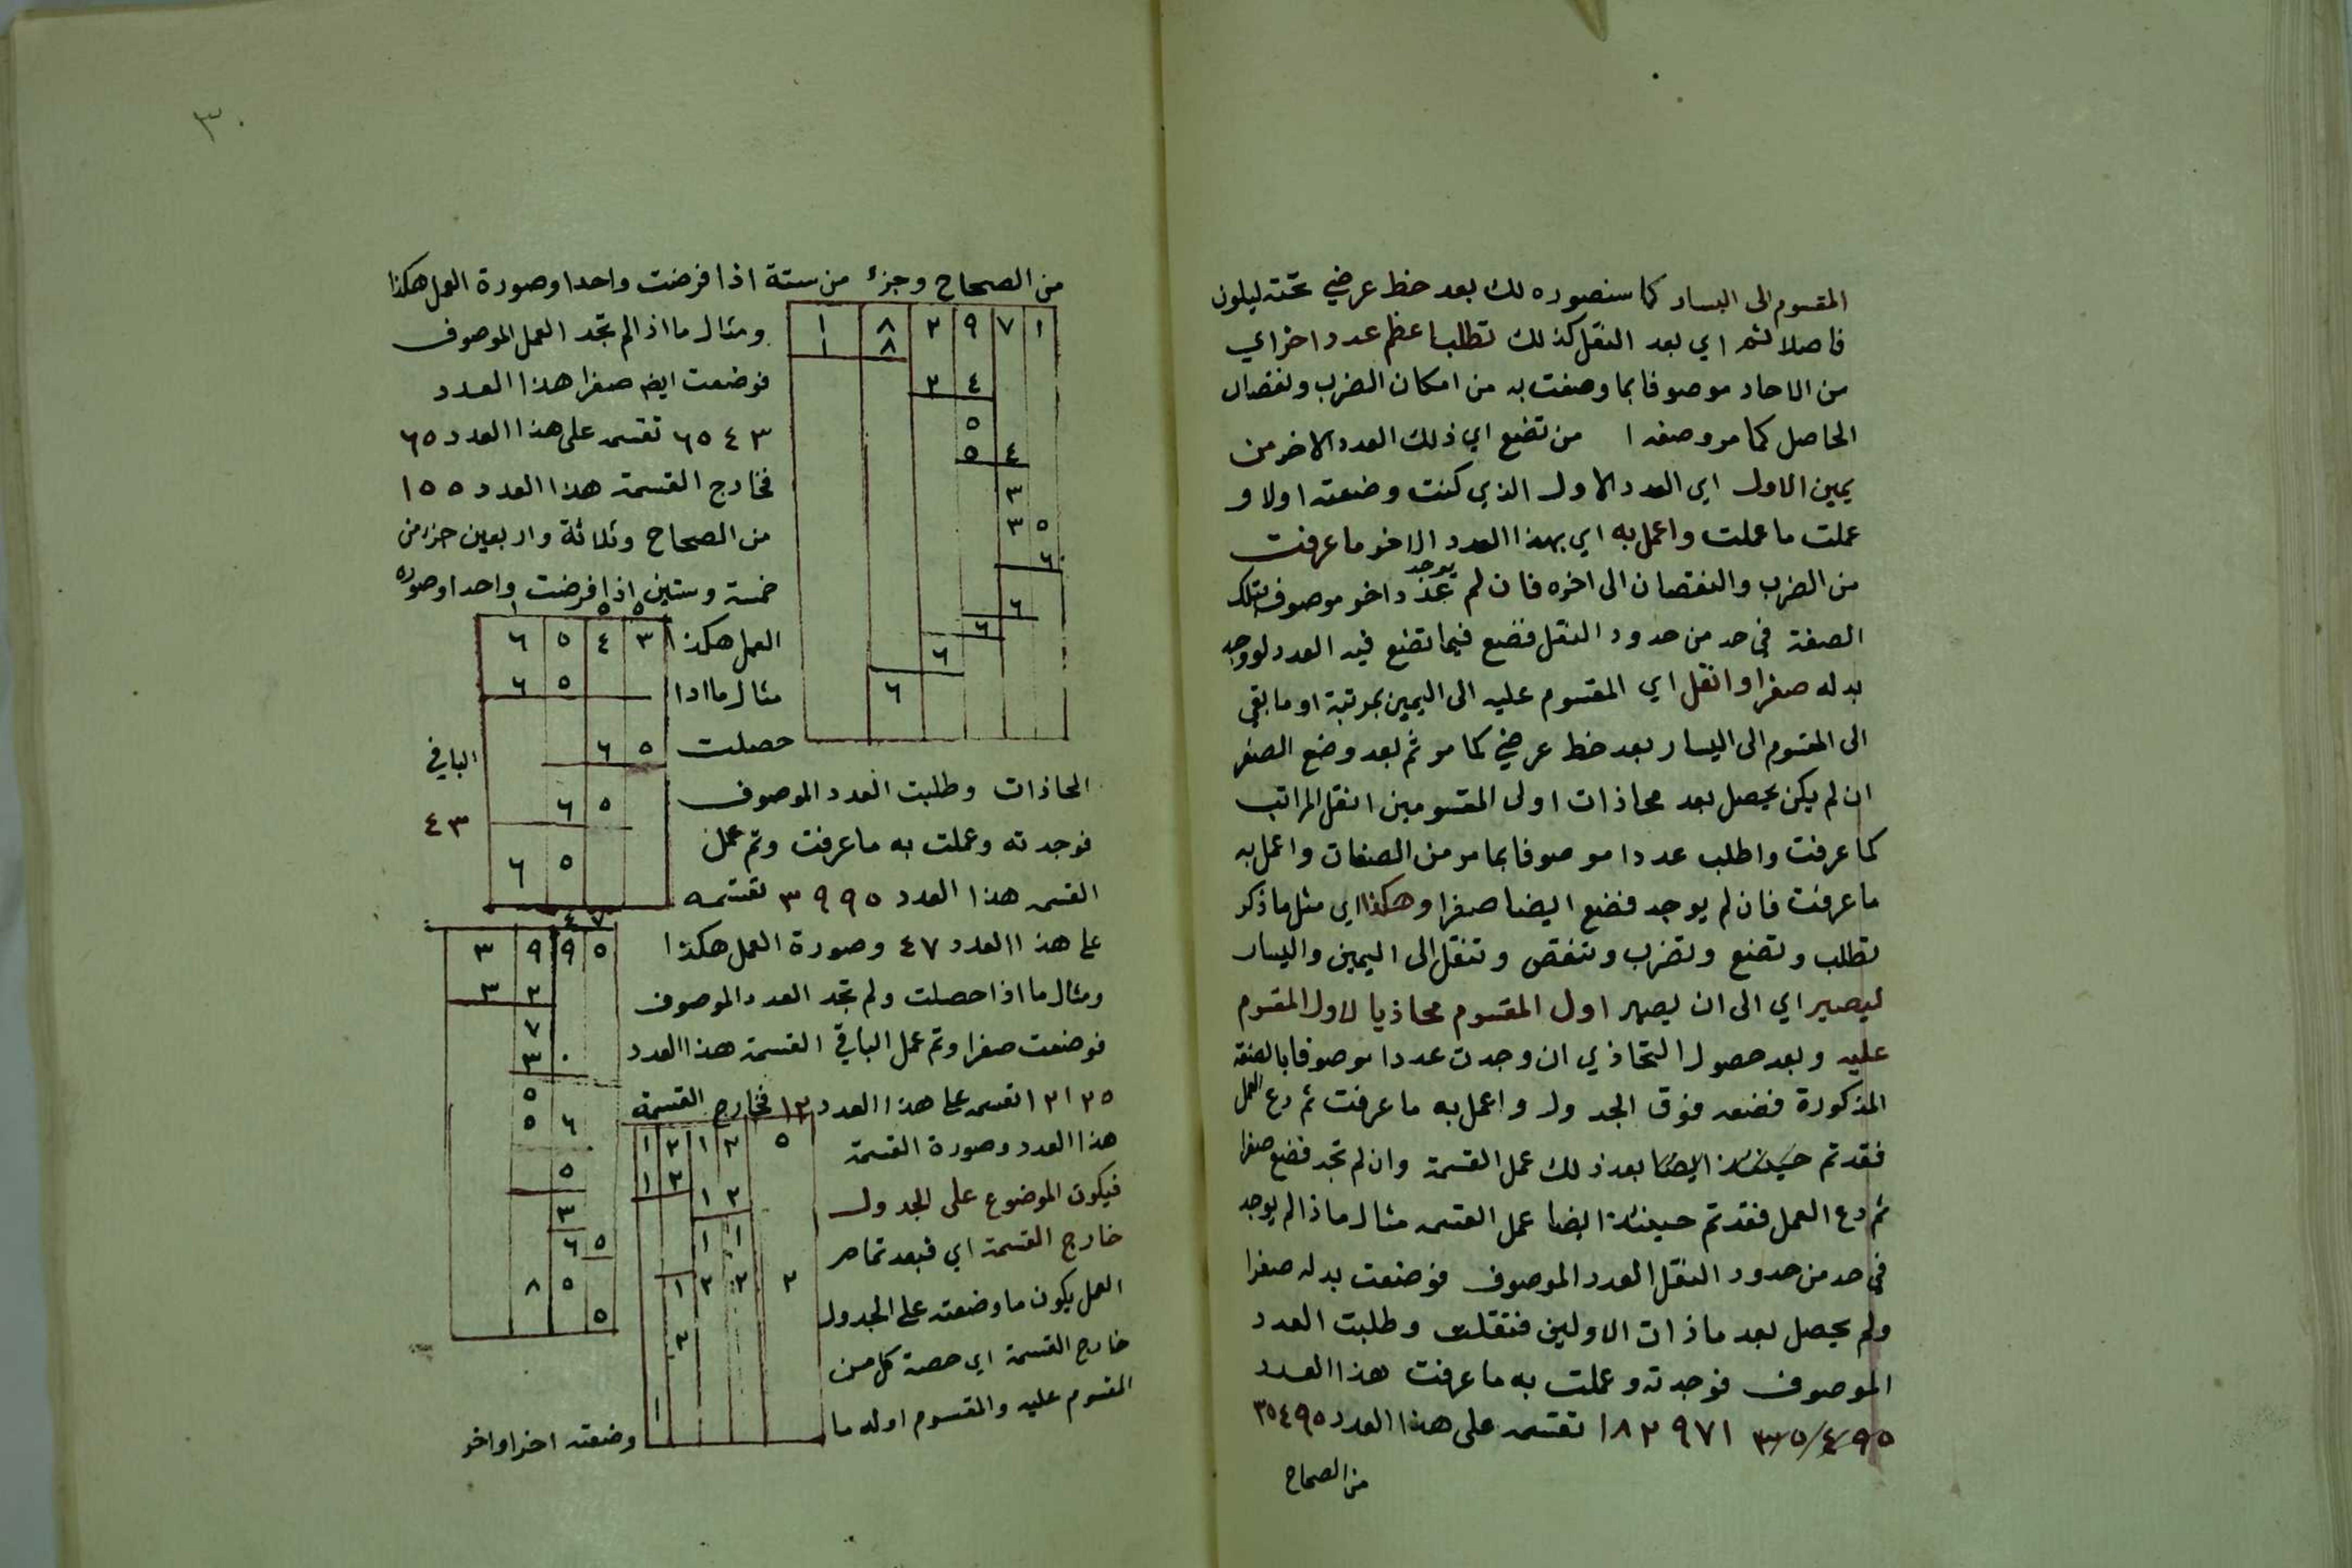 المقسوم الى اليسار كما سنصوره لك بعد خط عرضي تحته ليكون
فاصلا ثم اي بعد النقل كذلك تطلب اعظم عدد اخر اي
من الاحاد موصوفا بما وصفت به من امكان الضرب ونقصان
الحاصل كما مر وصفه من تضع اي ذلك العدد الاخر من
يمين الاول اي العدد الاول الذي كنت وضعته اولا و
عملت ما عملت واعمل به اي بهذا العدد الاخر ما عرفت
من الضرب والنقصان الى اخره فان لم يوجد عدد اخر موصوف بتلك
الصفة في حد من حدود النقل فضع فيما تضع فيه العدد لو وجد
بدله صفرا وانقل اي المقسوم عليه الى اليمين بمرتبة او ما بقي
الى المقسوم الى اليسار بعد خط عرضي كما مر ثم بعد وضع الصفر
ان لم يكن يحصل بعد محاذات اولى المقسومين انقل المراتب
كما عرفت واطلب عددا موصوفا بما مر من الصفات واعمل به
ما عرفت فان لم يوجد فضع ايضا صفرا وهكذا اي مثل ما ذكر
تطلب وتضع وتضرب وتنقص وتنقل الى اليمين واليسار
ليصير اي الى ان يصير اول المقسوم محاذيا لاول المقسوم
عليه وبعد حصول التحاذي ان وجدت عددا موصوفا بالصفة
المذكورة فضعه فوق الجدول واعمل به ما عرفت ثم دع العمل
فقد تم حينئذ ايضا بعد ذلك عمل القسمة وان لم تجد فضع صفرا
ثم دع العمل فقد تم حينئذ ايضا عمل القسمه مثال ماذا لم يوجد
في حد من حدود النقل العدد الموصوف فوضعت بدله صفرا
ولم يحصل بعد ماذات الاولين فنقلت وطلبت العدد
الموصوف فوجدته وعملت به ما عرفت هذا العدد
٣٥٤٩٥ ١٨٢٩٧١ تقسمه على هذا العدد ٣٥٤٩٥
من الصحاح
٣٠
من الصحاح وجزء من ستة اذا فرضت واحدا وصورة العمل هكذا
ومثال ما اذا لم تجد العمل الموصوف
فوضعت ايضا صفرا هذا العدد
٦٥٤٣ تقسمه على هذا العدد ٦٥
فخارج القسمة هذا العدد ١٥٥
من الصحاح وثلاثة واربعين جزء من
خمسة وستين اذا فرضت واحدا وصورة
العمل هكذا
مثال ما اذا
حصلت
المحاذات وطلبت العدد الموصوف
فوجدته وعملت به ما عرفت وتم عمل
القسمه هذا العدد ٣٩٩٥ تقسمه
على هذا العدد ٤٧ وصورة العمل هكذا
ومثال ما اذا حصلت ولم تجد العدد الموصوف
فوضعت صفرا وتم عمل الباقي القسمة هذا العدد
١٢١٢٥ تقسمه على هذا العدد ١٢ فخارج القسمة
هذا العدد وصورة القسمة
فيكون الموضوع على الجدول
خارج القسمة اي فبعد تمام
العمل يكون ما وضعته على الجدول
خارج القسمة اي حصة كل من
المقسوم عليه والمقسوم اوله ما وضعته اخرا واخر
١ ٨ ٢ ٩ ٧ ١
١ ٨
٢ ٤
٥
٥ ٤
٣
٣ ٥
٦
٦
٦
٦
٦
١ ٥ ٥
٦ ٥ ٤ ٣
٦ ٥
٦ ٥
٦ ٥
٦ ٥
الباقي
٤٣
٤ ٧
٣ ٩ ٩ ٥
٣ ٢
٧
٣ ٠
٥
٥ ٦
٥
٣
٦ ٥
٨ ٥
٥
١ ٢ ١ ٢ ٥
١ ٢
١ ٢
١ ١
١ ٢ ٢ ٢
٢
١